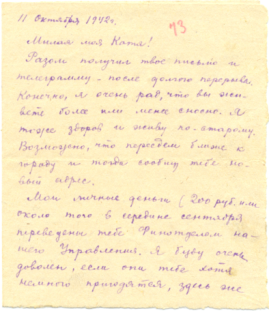 11 Октября 1942г.
73
Милая моя Катя!
Разом получил твое письмо и
телеграмму - после долгого перерыва.
Конечно, я очень рад, что вы жи-
вете более или менее сносно. Я
тоже здоров и живу по-старому.
Возможно, что переедем ближе к
городу и тогда сообщу тебе но-
вый адрес.
Мои личные деньги (200 руб. или
около того в середине сентября
переведены тебе Финотделом на-
шего Управления. Я буду очень
доволен, если они тебе хотя
немного пригодятся, здесь же